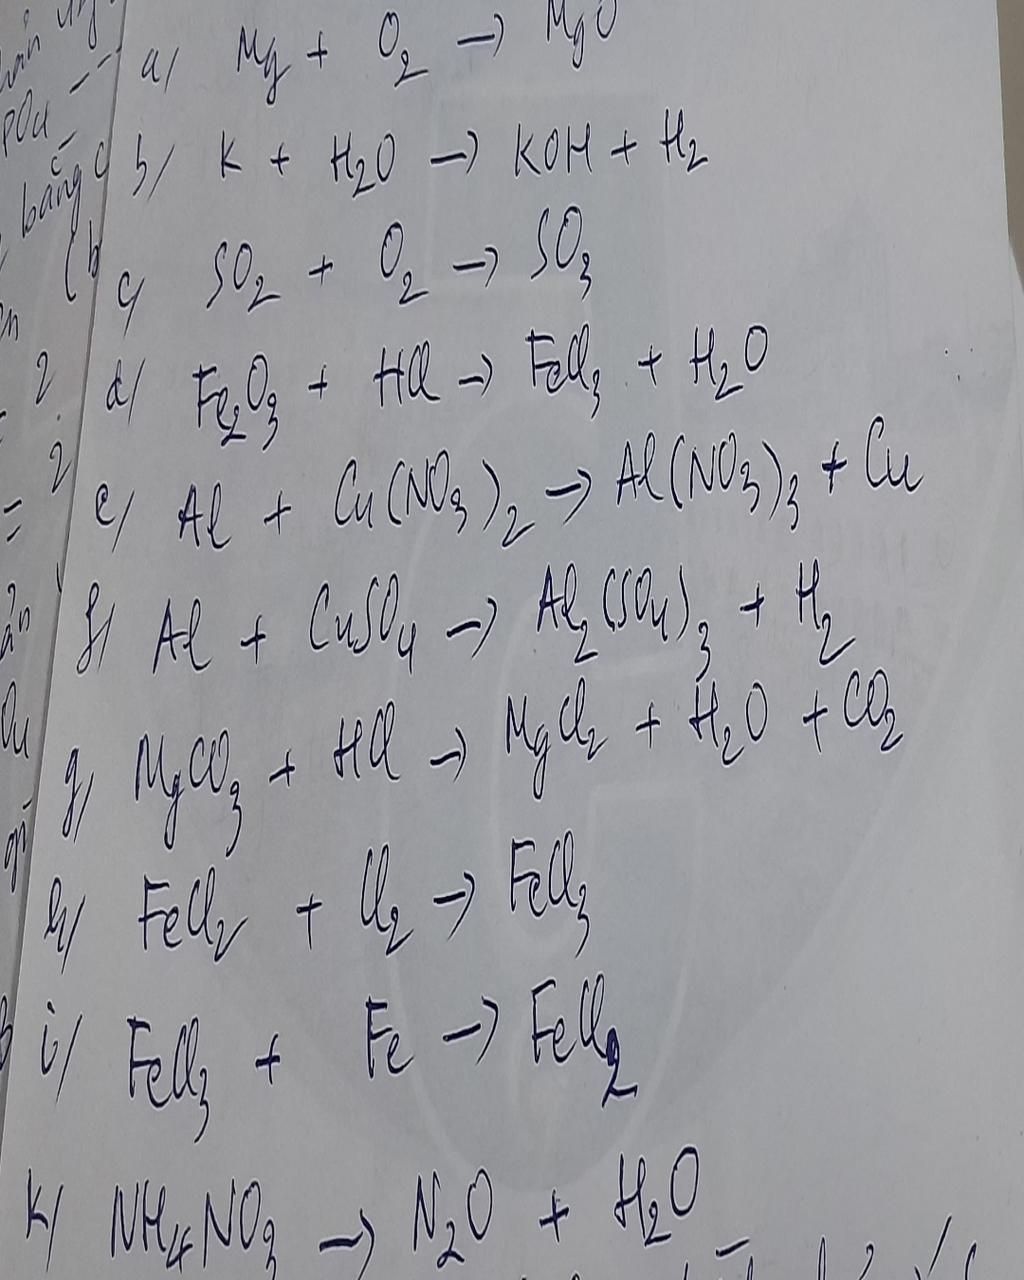 a/ Mg + O2 → MgO
b/ K + H2O → KOH + H2
c/ SO2 + O2 → SO3
d/ Fe2O3 + HCl → FeCl3 + H2O
e/ Al + Cu(NO3)2 → Al(NO3)3 + Cu
f/ Al + CuSO4 → Al2(SO4)3 + H2
g/ MgCO3 + HCl → MgCl2 + H2O + CO2
h/ FeCl2 + Cl2 → FeCl3
i/ FeCl3 + Fe → FeCl2
k/ NH4NO3 → N2O + H2O
PO4
bằng
(b
2
= 2
=